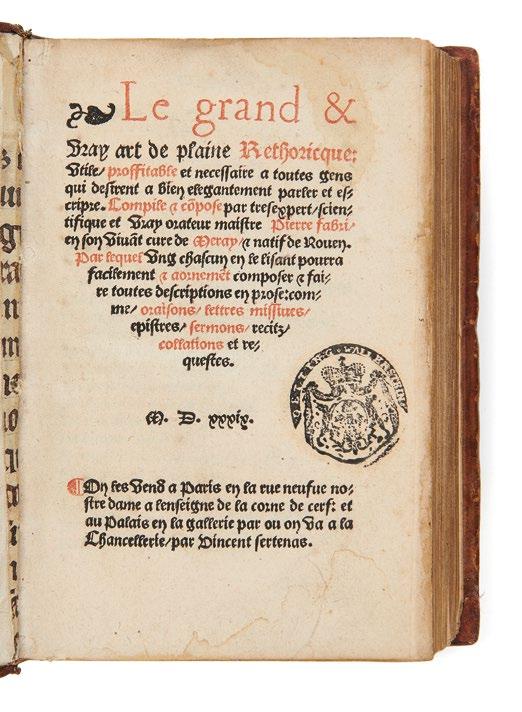 Le grand &
Vray art de plaine Rethoricque:
Vtile/ proffitable et necessaire a toutes gens
qui desirent a bien elegantement parler et es-
cripre. Compile & cõpose par tresexpert/ scien-
tifique et Vray orateur maistre Pierre fabri/
en son Viuãt cure de Meray/ & natif de Rouen.
Par lequel Vng chascun en le lisant pourra
facilement & aornemẽt composer & fai-
re toutes descriptions en prose: com-
me/ oraisons/ lettres missiues/
epistres/ sermons/ recitz/
collations et re-
questes.
M. D. xxxix.
On les vend a Paris en la rue neufue no-
stre dame a lenseigne de la corne de cerf: et
au Palais en la gallerie par ou on Va a la
Chancellerie/ par Vincent sertenas.